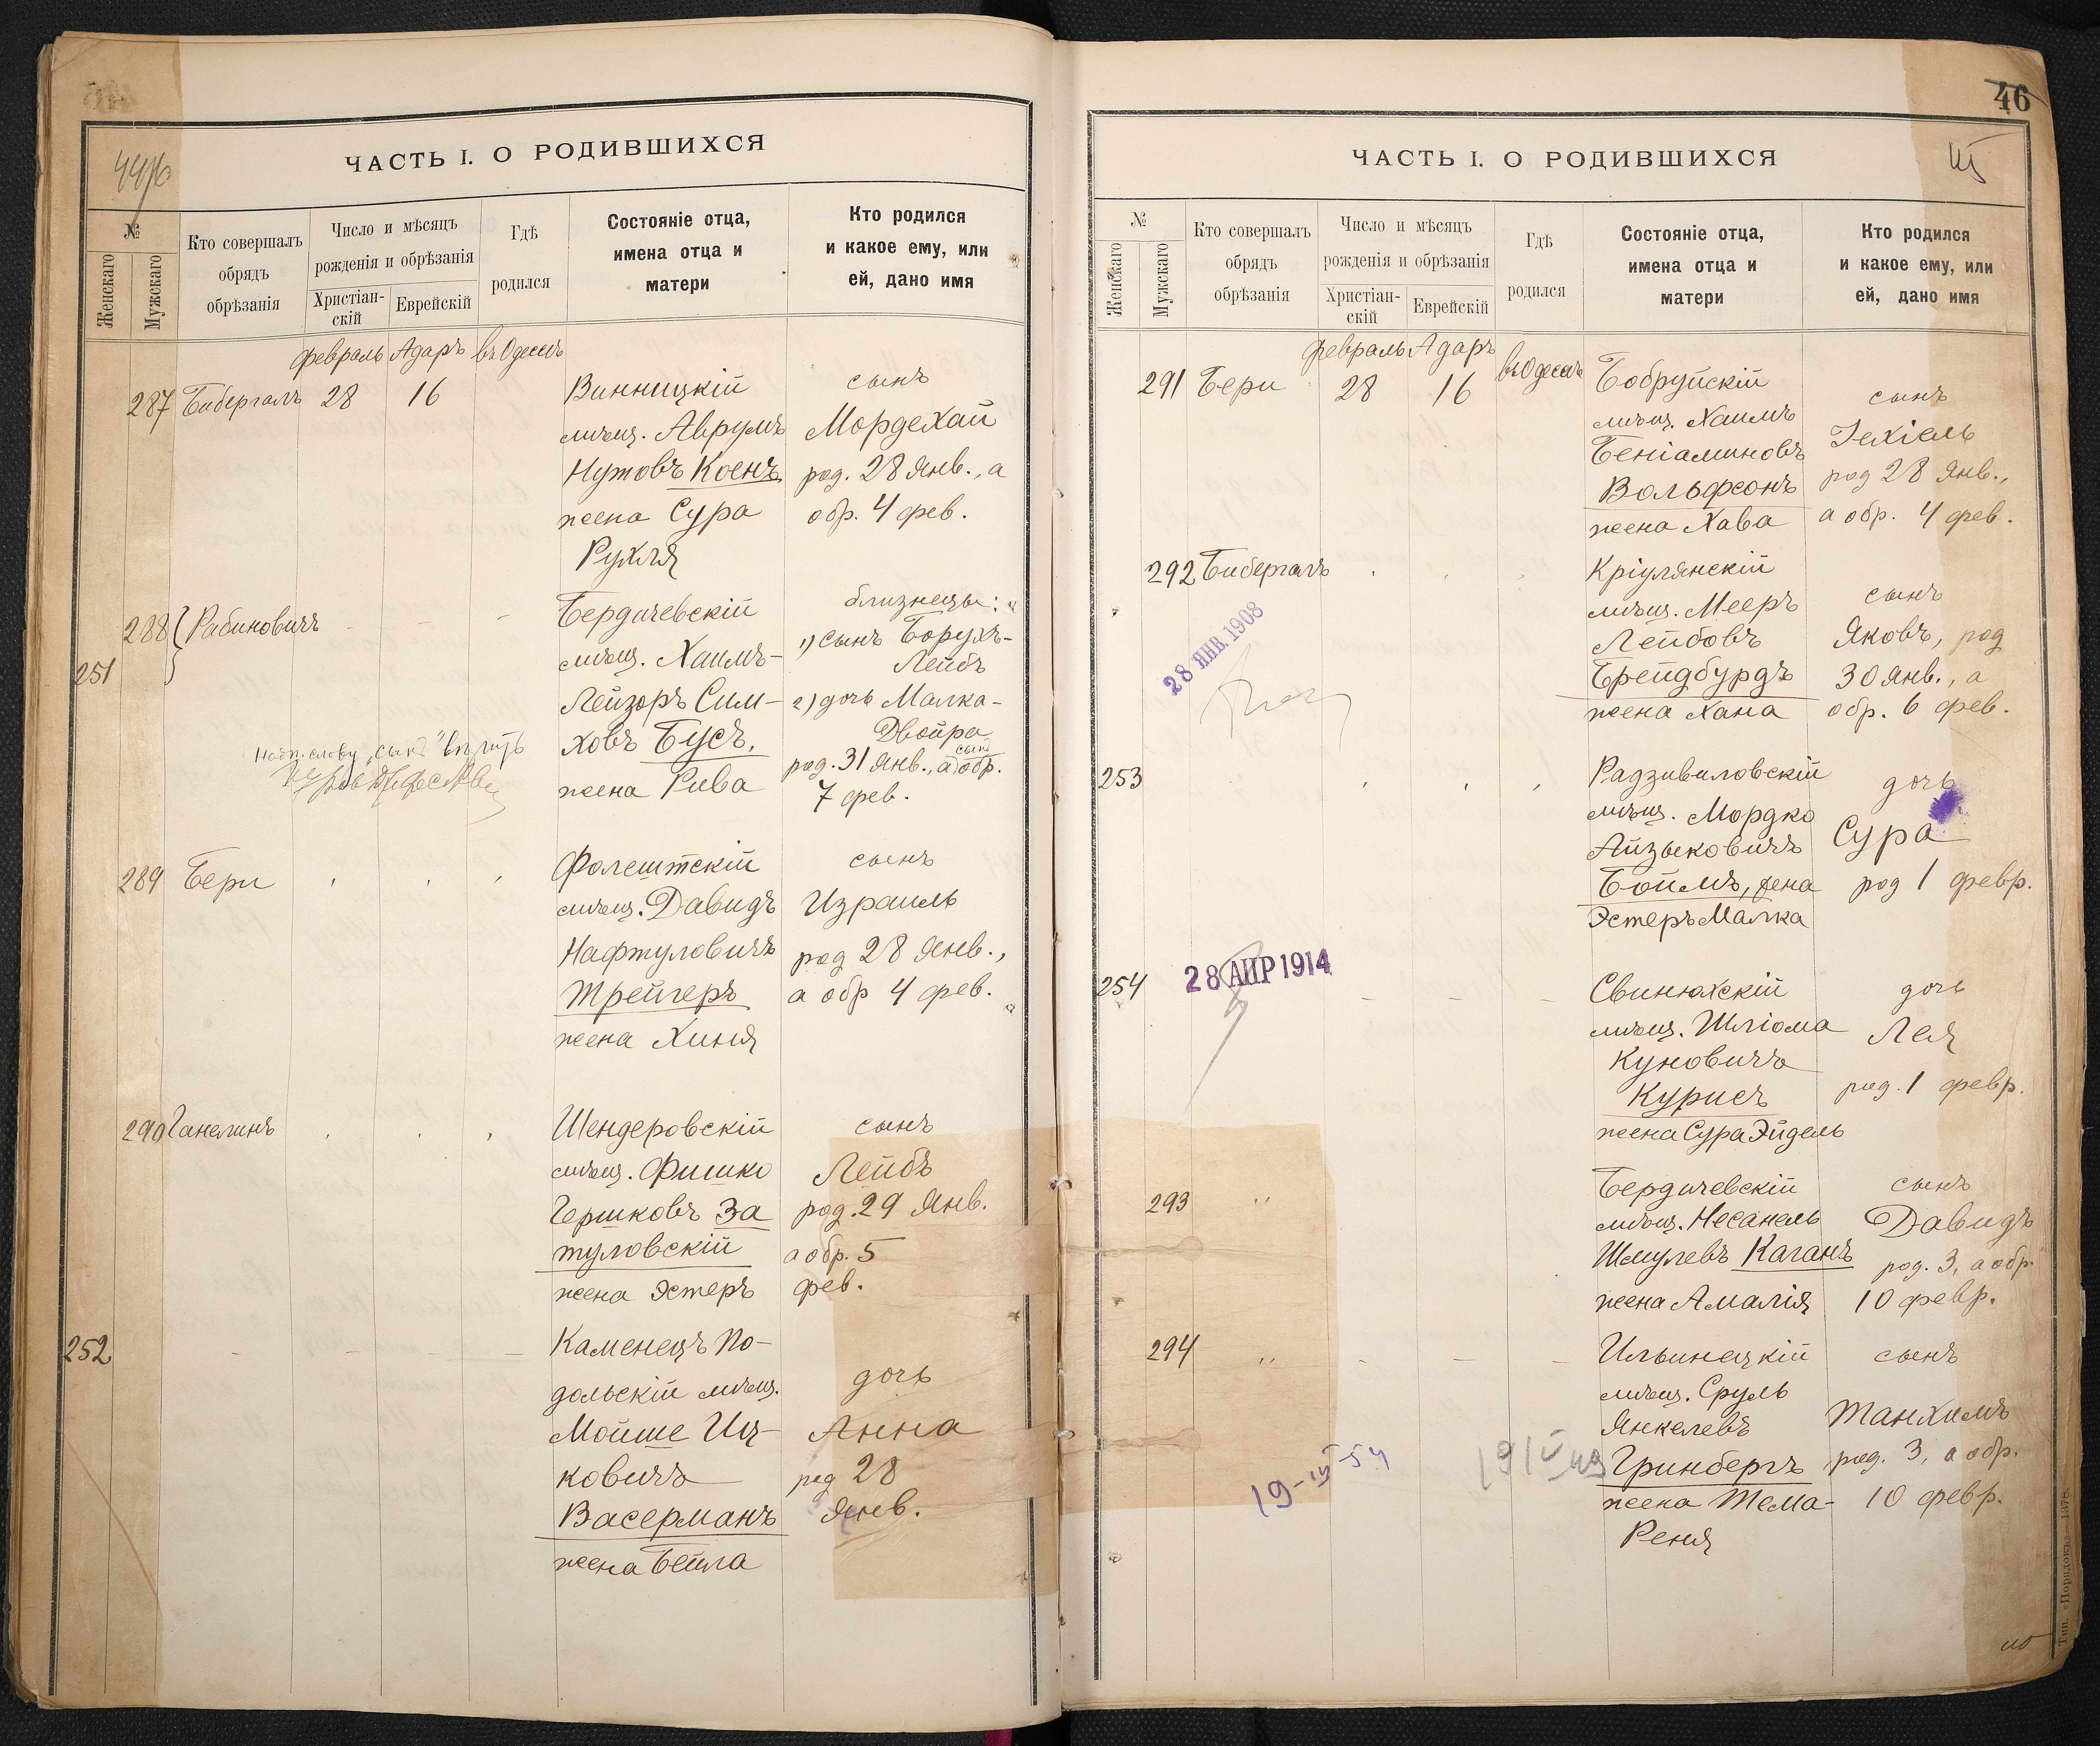 ЧАСТЬ I. О РОДИВШИХСЯ
№
Женскаго
Мужскаго
Кто совершалъ
обрядъ
обрѣзанія
Число и мѣсяцъ
рожденія и обрѣзанія
Христіан-
скій
Еврейскій
Гдѣ
родился
Состояніе отца,
имена отца и
матери
Кто родился
и какое ему, или
ей, дано имя
февраль Адаръ въ Одессѣ
287 Бибергалъ 28 16
Винницкій
мѣщ. Аврумъ
Нутовъ Коенъ
жена Сура
Рухля
сынъ
Мордехай
род. 28 Янв., а
обр. 4 фев.
288 Рабиновичъ
251
Бердичевскій
мѣщ. Хаимъ-
Лейзоръ Сим-
ховъ Бусъ,
жена Рива
близнецы:
1) сынъ Борухъ-
Лейбъ
2) дочь Малка-
Двойра
сынъ
род. 31 Янв., а обр.
7 фев.
289 Бери
Фалештскій
мѣщ. Давидъ
Нафтуловичъ
Трейгеръ
жена Хиня
сынъ
Израиль
род 28 Янв.,
а обр 4 фев.
290 Ганелинъ
Шендеровскій
мѣщ. Фишко
Гершковъ За
туловскій
жена Эстеръ
сынъ
Лейбъ
род. 29 Янв.
а обр. 5
фев.
252
Каменецъ По-
дольскій мѣщ.
Мойше Иц-
ковичъ
Васерманъ
жена Бейла
дочь
Анна
род 28
Янв.
46
ЧАСТЬ I. О РОДИВШИХСЯ
№
Женскаго
Мужскаго
Кто совершалъ
обрядъ
обрѣзанія
Число и мѣсяцъ
рожденія и обрѣзанія
Христіан-
скій
Еврейскій
Гдѣ
родился
Состояніе отца,
имена отца и
матери
Кто родился
и какое ему, или
ей, дано имя
февраль Адаръ въ Одессѣ
291 Бери 28 16
Бобруйскій
мѣщ. Хаимъ
Беніаминовъ
Вольфсонъ
жена Хава
сынъ
Іехіель
род 28 Янв.,
а обр. 4 фев.
292 Бибергалъ
28 ЯНВ. 1908
Кріулянскій
мѣщ. Мееръ
Лейбовъ
Брейдбурдъ
жена Хана
сынъ
Яковъ, род
30 Янв., а
обр. 6 фев.
253
Радзивиловскій
мѣщ. Мордко
Айзыковичъ
Боймъ, жена
Эстеръ Малка
дочь
Сура
род 1 февр.
254
28 АПР 1914
Свинюхскій
мѣщ. Шліома
Куновичъ
Курисъ
жена Сура Эйдель
дочь
Лея
род. 1 февр.
293 "
Бердичевскій
мѣщ. Несанель
Шмулевъ Каганъ
жена Амалія
сынъ
Давидъ
род. 3, а обр.
10 февр.
294 "
Ильинецкій
мѣщ. Сруль
Янкелевъ
Гринбергъ
жена Тема-
Реня
сынъ
Танхимъ
род. 3, а обр.
10 февр.
19-III-54
Тип. «Порядокъ» 1378.